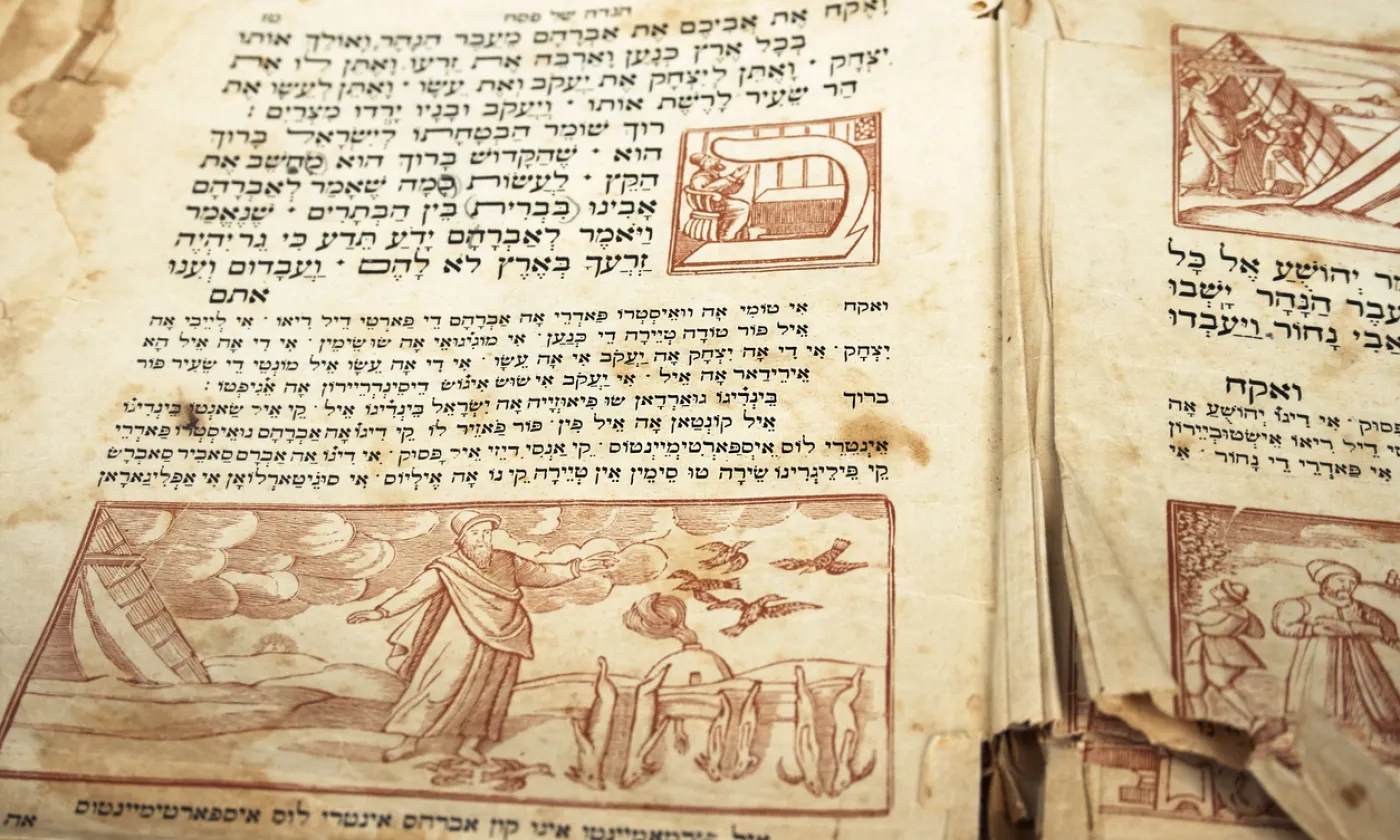 הגדה של פסח
ואקח את אביכם את אברהם מעבר הנהר ואולך אותו
בכל ארץ כנען וארבה את זרעו ואתן לו את
יצחק · ואתן ליצחק את יעקב ואת עשו · ואתן לעשו את
הר שעיר לרשת אותו · ויעקב ובניו ירדו מצרים :
רוך שומר הבטחתו לישראל ברוך
הוא · שהקדוש ברוך הוא מחשב את
הקץ · לעשות כמה שאמר לאברהם
אבינו בברית בין הבתרים · שנאמר
ויאמר לאברהם ידע תדע כי גר יהיה
זרעך בארץ לא להם · ועבדום וענו
אתם
ואקח אי טומי אה וואיסטרו פאדרי אה אברהם די פארטי דיל ריאו · אי לייבי אה
איל פור טודה טיירה די כנען · אי מוגיגואי אה שו שימין · אי די אה איל הא
יצחק · אי די אה יצחק אה יעקב אי אה עשו · אי די אה עשו איל מונטי די שעיר פור
אירידאר אה איל · אי יעקב אי שוש איגוש דיסינדריירון אה אגיפטו :
ברוך בינדיגו גוארדאן שו פיאוזייה אה ישראל בינדיגו איל · קי איל שאנטו בינדיגו
איל קונטאן אה איל פין · פור פאזיר לו קי דיגו אה אברהם נואיסטרו פאדרי
אינטרי לוס איספארטימיינטוס · קי אנסי דיזי איל פסוק · אי דיגו אה אברם סאביר סאבראש
קי פיליגרינו שירה טו סימין אין טיירה קי נו אה אילייוס · אי סוגיטארלואן אי אפליגאראן
איל אינו קון אברהם אינטרי לוס איספארטימיינטוס
אה
יהושע אל כל
עבר הנהר ישבו
אבי נחור ויעבדו
ואקח
פסוק · אי דיגו יהושע אה
דיל ריאו אישטובייירון
אי פאדרי די נחור · אי